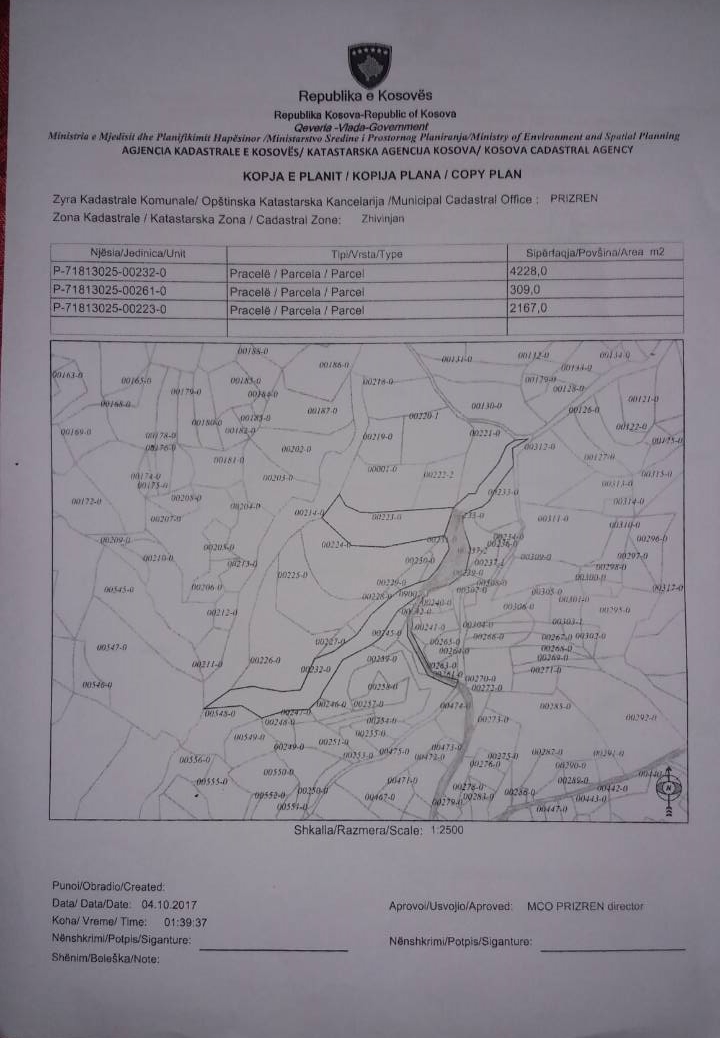 Republika e Kosovës
Republika Kosova-Republic of Kosova
Qeveria -Vlada-Government
Ministria e Mjedisit dhe Planifikimit Hapësinor /Ministarstvo Sredine i Prostornog Planiranja/Ministry of Environment and Spatial Planning
AGJENCIA KADASTRALE E KOSOVËS/ KATASTARSKA AGENCIJA KOSOVA/ KOSOVA CADASTRAL AGENCY
KOPJA E PLANIT / KOPIJA PLANA / COPY PLAN
Zyra Kadastrale Komunale/ Opštinska Katastarska Kancelarija /Municipal Cadastral Office : PRIZREN
Zona Kadastrale / Katastarska Zona / Cadastral Zone: Zhivinjan
Njësia/Jedinica/Unit Tipi/Vrsta/Type Sipërfaqja/Povšina/Area m2
P-71813025-00232-0 Pracelë / Parcela / Parcel 4228,0
P-71813025-00261-0 Pracelë / Parcela / Parcel 309,0
P-71813025-00223-0 Pracelë / Parcela / Parcel 2167,0
00188-0 00131-0 00132-0 00134-0
00186-0
00163-0 00165-0 00185-0 00218-0 00129-0
00179-0 00128-0
00168-0 00187-0 00220-1 00130-0 00126-0 00121-0
00169-0 00178-0 00180-0 00182-0 00219-0 00221-0 00122-0
00176-0 00202-0 00312-0 00125-0
00181-0 00127-0
00174-0 00203-0 00001-0 00222-2 00315-0
00175-0 00313-0
00172-0 00204-0 00233-0 00314-0
00207-0 00214-0 00223-0 00311-0 00310-0
00209-0 00205-0 00224-0 00296-0
00210-0 00213-0 00309-0 00297-0
00225-0 00298-0
00545-0 00206-0 00229-0 00300-0
00228-0 00240-0 00305-0 00301-0
00212-0 00306-0 00295-0
00227-0 00241-0 00304-0 00303-1
00547-0 00245-0 00265-0 00268-0 00302-0
00211-0 00226-0 00259-0 00264-0 00269-0
00232-0 00263-0 00271-0
00546-0 00258-0 00270-0
00272-0
00548-0 00246-0 00257-0 00474-0 00285-0
00248-0 00254-0 00273-0 00292-0
00549-0 00251-0 00255-0
00249-0 00253-0 00475-0 00473-0 00287-0 00291-0
00556-0 00472-0 00275-0
00276-0 00290-0
00555-0 00550-0 00471-0 00289-0
00552-0 00250-0 00467-0 00278-0 00286-0 00442-0
00551-0 00279-0 00443-0
00447-0
N
Shkalla/Razmera/Scale: 1:2500
Punoi/Obradio/Created:
Data/ Data/Date: 04.10.2017
Aprovoi/Usvojio/Aproved: MCO PRIZREN director
Koha/ Vreme/ Time: 01:39:37
Nënshkrimi/Potpis/Siganture:
Nënshkrimi/Potpis/Siganture:
Shënim/Beleška/Note: